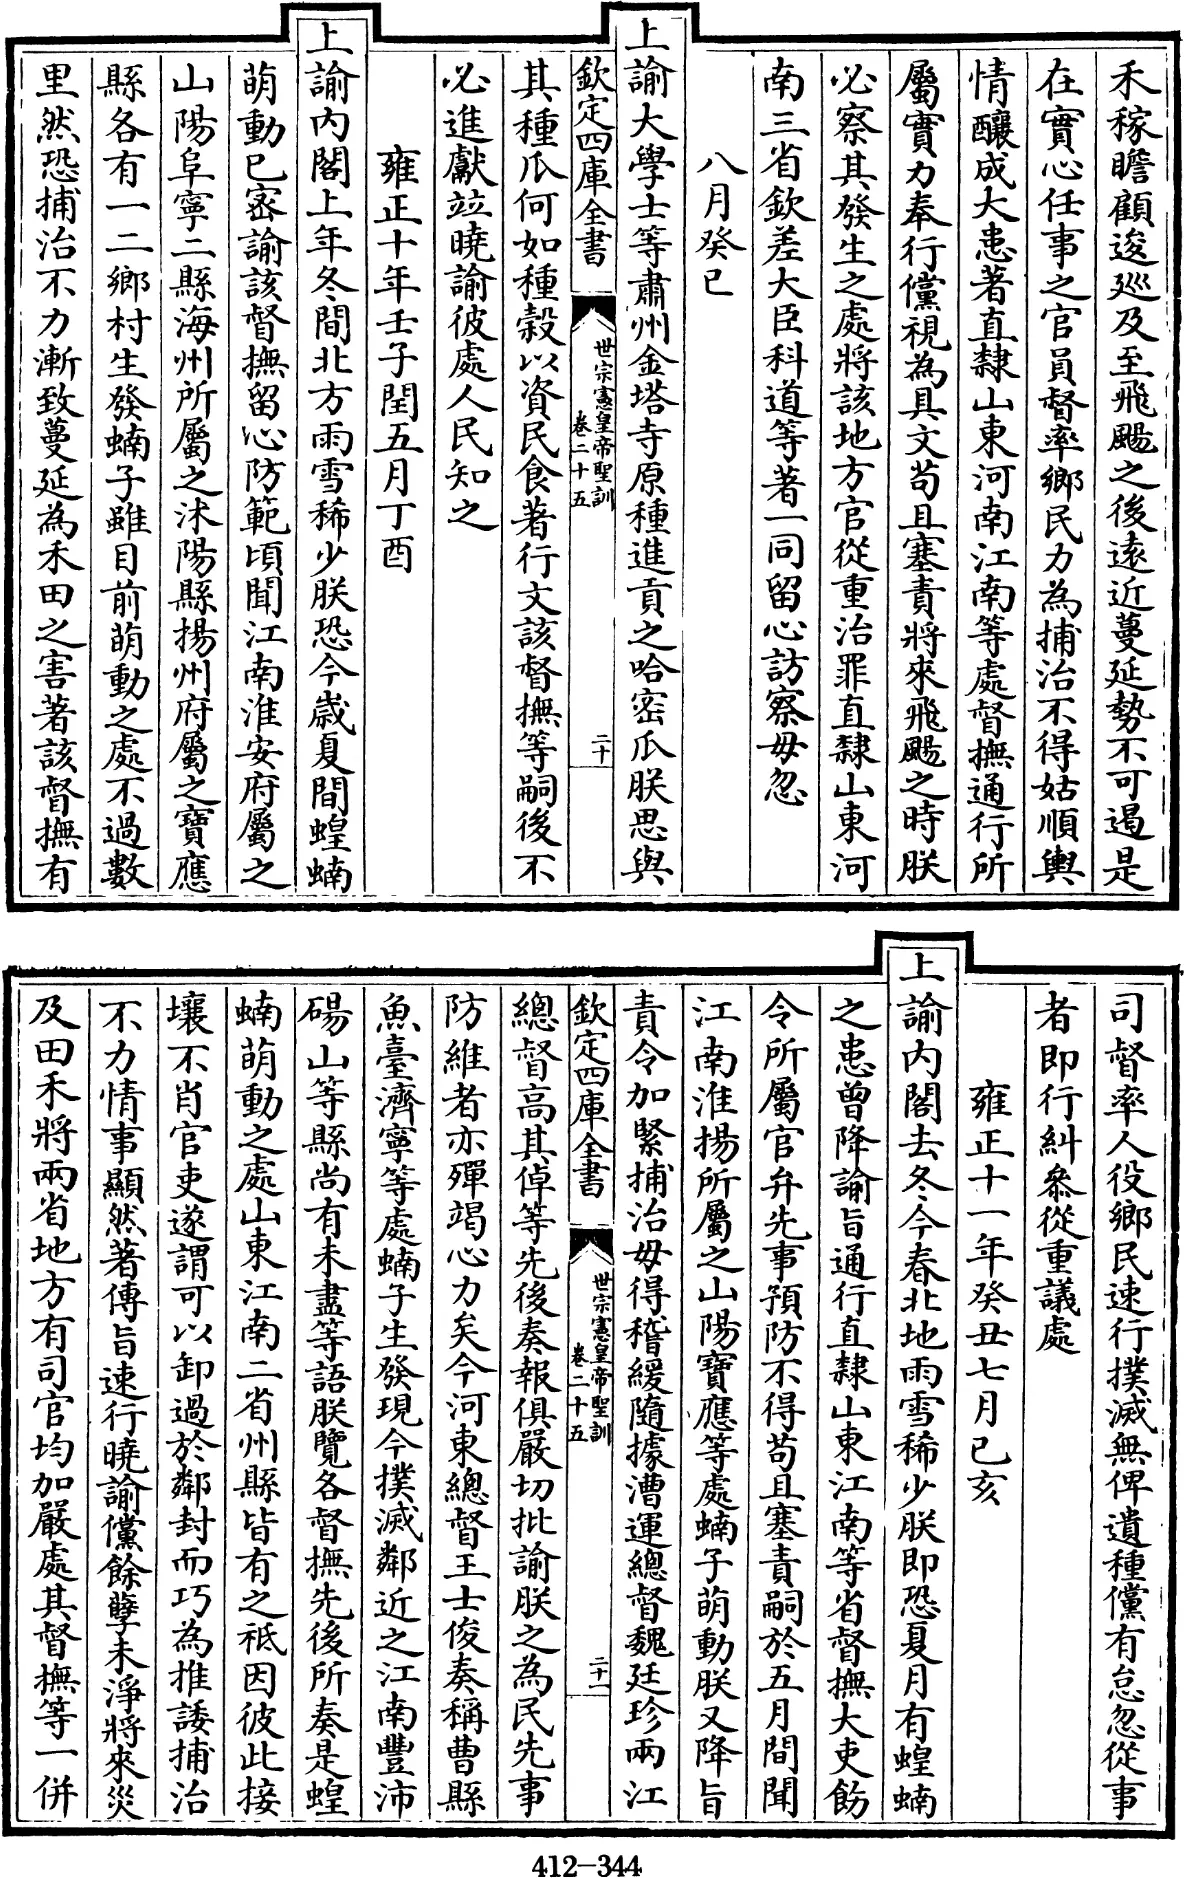 禾稼瞻顧逡巡及至飛颺之後逺近蔓延勢不可遏是
在實心任事之官員督率鄉民力為捕治不得姑順輿
情釀成大患著直隸山東河南江南等處督撫通行所
屬實力奉行儻視為具文苟且塞責將來飛颺之時朕
必察其發生之處將該地方官從重治罪直隸山東河
南三省欽差大臣科道等著一同留心訪察毋忽
八月癸巳
上諭大學士等肅州金塔寺原種進貢之哈密瓜朕思與
欽定四庫全書
世宗憲皇帝聖訓
卷二十五
二十
其種瓜何如種穀以資民食著行文該督撫等嗣後不
必進獻竝曉諭彼處人民知之
雍正十年壬子閏五月丁酉
上諭內閣上年冬間北方雨雪稀少朕恐今歲夏間蝗蝻
萌動已密諭該督撫留心防範頃聞江南淮安府屬之
山陽阜寧二縣海州所屬之沭陽縣揚州府屬之寶應
縣各有一二鄉村生發蝻子雖目前萌動之處不過數
里然恐捕治不力漸致蔓延為禾田之害著該督撫有
司督率人役鄉民速行撲滅無俾遺種儻有怠忽從事
者即行糾參從重議處
雍正十一年癸丑七月己亥
上諭內閣去冬今春北地雨雪稀少朕即恐夏月有蝗蝻
之患曾降諭旨通行直隸山東江南等省督撫大吏飭
令所屬官弁先事預防不得苟且塞責嗣於五月間聞
江南淮揚所屬之山陽寶應等處蝻子萌動朕又降旨
責令加緊捕治毋得稽緩隨據漕運總督魏廷珍兩江
欽定四庫全書
世宗憲皇帝聖訓
卷二十五
二十一
總督高其倬等先後奏報俱嚴切批諭朕之為民先事
防維者亦殫竭心力矣今河東總督王士俊奏稱曹縣
魚臺濟寧等處蝻子生發現今撲滅鄰近之江南豐沛
碭山等縣尚有未盡等語朕覽各督撫先後所奏是蝗
蝻萌動之處山東江南二省州縣皆有之祇因彼此接
壤不肖官吏遂謂可以卸過於鄰封而巧為推諉捕治
不力情事顯然著傳旨速行曉諭儻餘孽未淨將來災
及田禾將兩省地方有司官均加嚴處其督撫等一併
412-344